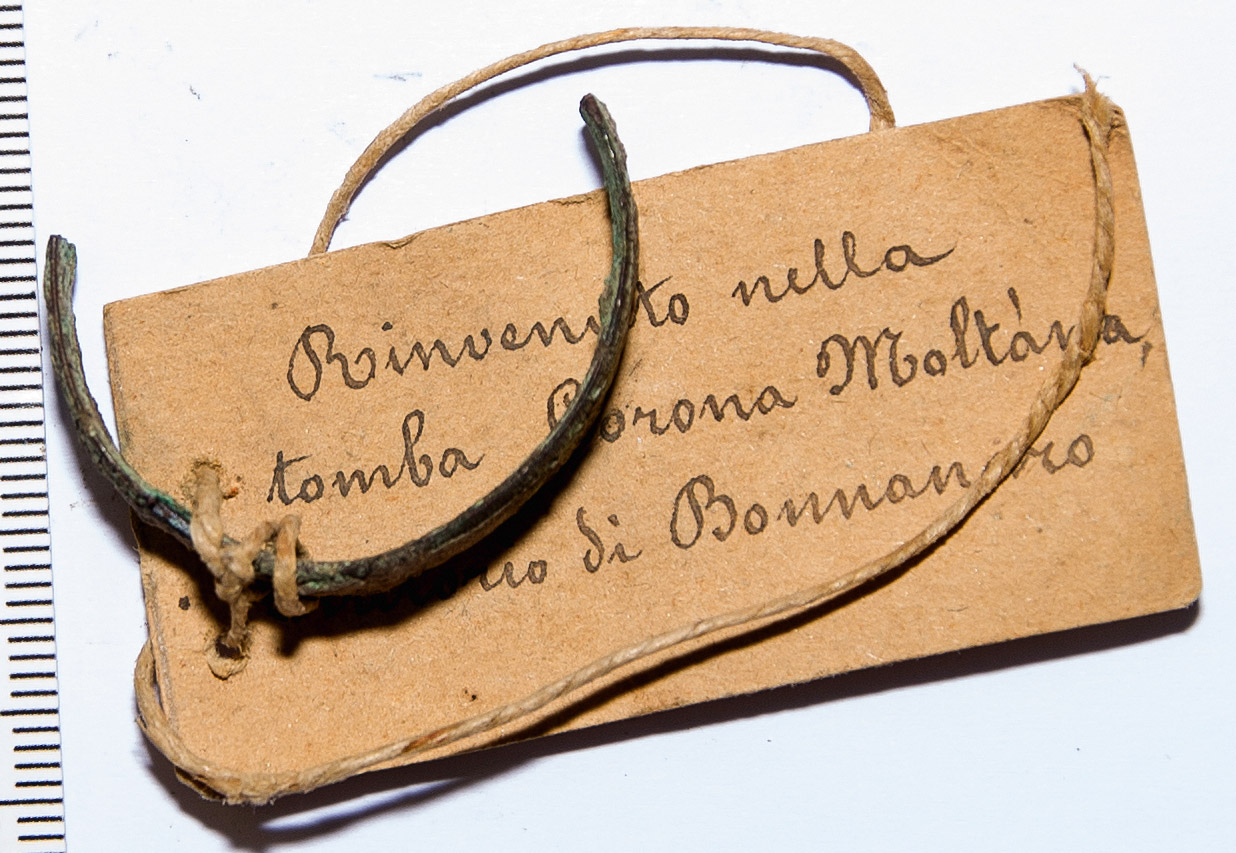 Rinvenuto nella
tomba Corona Moltána,
di Bonnanaro